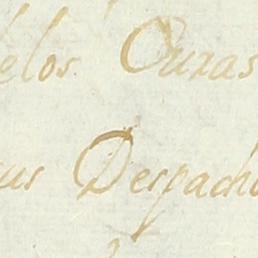 elos Ouzas
us Despacho